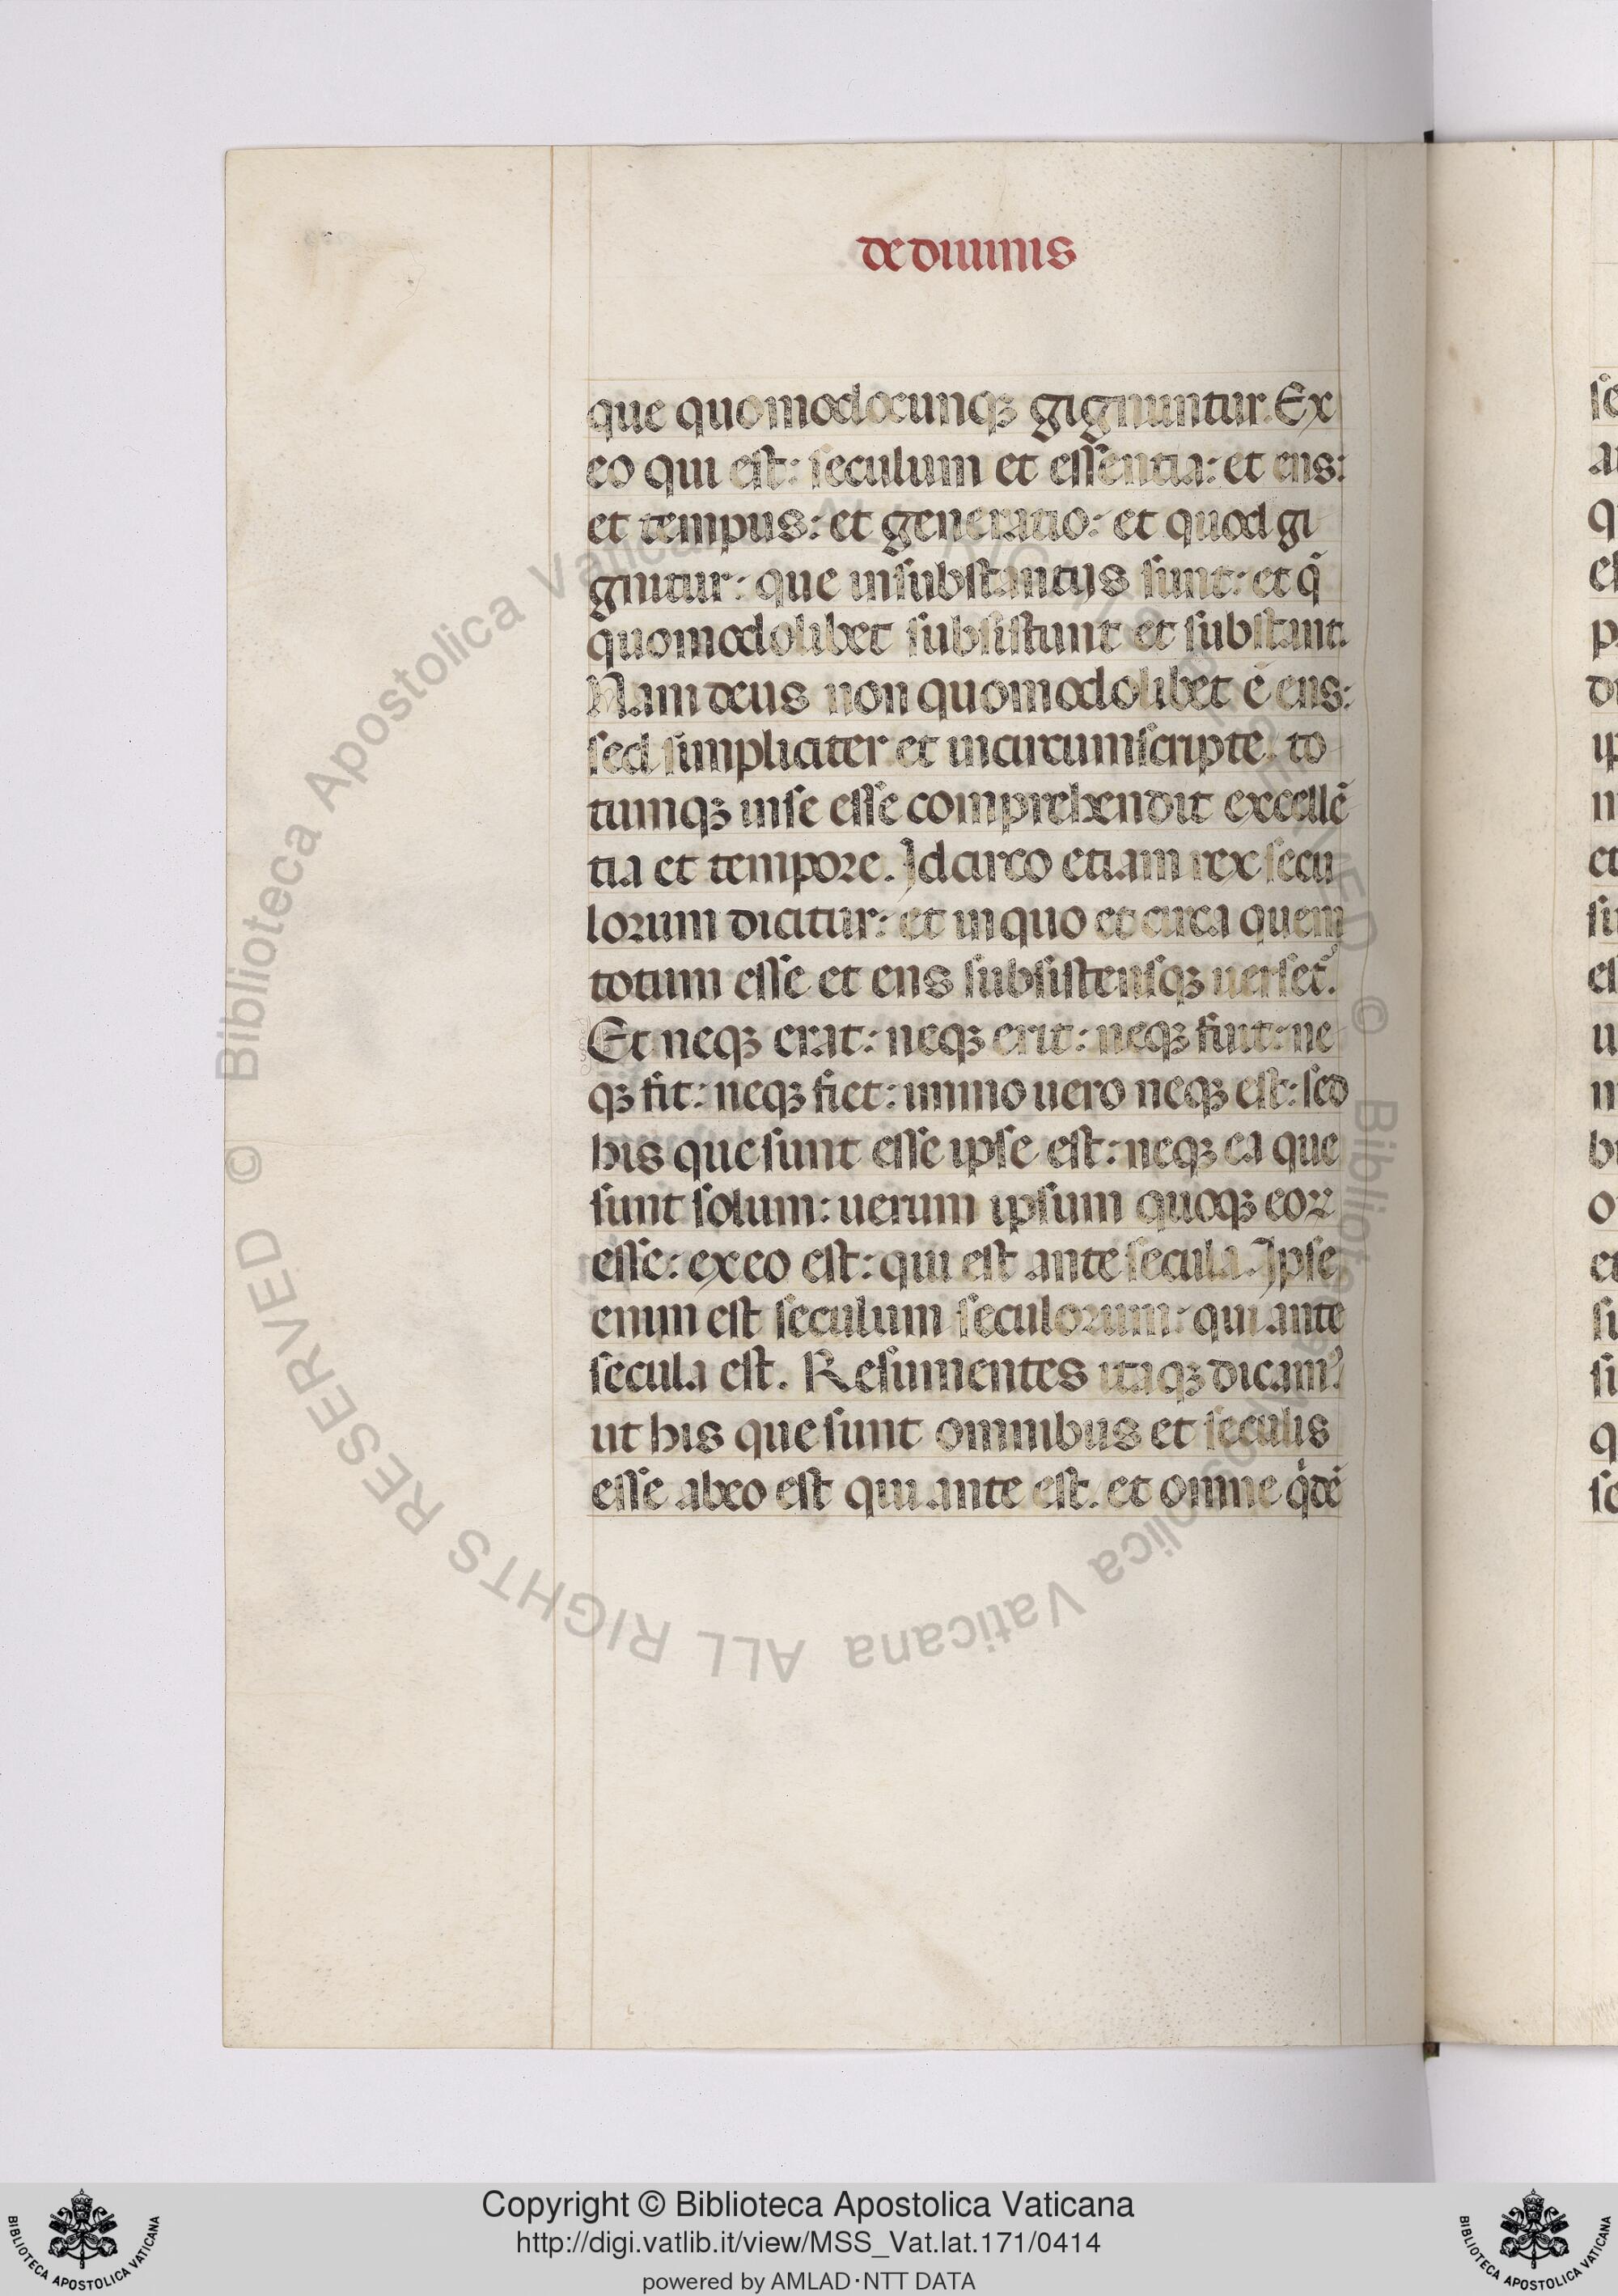 de diuinis
que quomodocunqꝫ gignuntur. Ex
eo qui est: seculum et essentia: et ens:
et tempus: et generatio: et quod gi
gnitur: que insubstantijs sunt: et q̃
quomodolibet subsistunt et substant.
Nam deus non quomodolibet ē ens:
sed simpliciter et incircumscripte. to
tumqꝫ inse esse comprehendit excellẽ
tia et tempore. Idcirco etiam rex secu
lorum dicitur: et inquo et circa quem
totum esse et ens subsistensqꝫ uerset᷑.
Et neqꝫ erat: neqꝫ erit: neqꝫ fiut: ne
qꝫ fit: neqꝫ fiet: immo uero neqꝫ est: sed
his que sunt esse ipse est: neqꝫ ea que
sunt solum: uerum ipsum quoqꝫ eoꝝ
esse: exeo est: qui est ante secula. Ipse
enim est seculum seculorum: qui ante
secula est. Resumentes itaqꝫ dicamꝰ
ut his que sunt omnibus et seculis
esse abeo est qui ante est. et omne q̇dẽ
© Biblioteca Apostolica Vaticana ALL RIGHTS RESERVED © Biblioteca Apostolica Vaticana ALL RIGHTS RESERVED
Copyright © Biblioteca Apostolica Vaticana
http://digi.vatlib.it/view/MSS_Vat.lat.171/0414
powered by AMLAD·NTT DATA
BIBLIOTECA APOSTOLICA VATICANA
BIBLIOTECA APOSTOLICA VATICANA